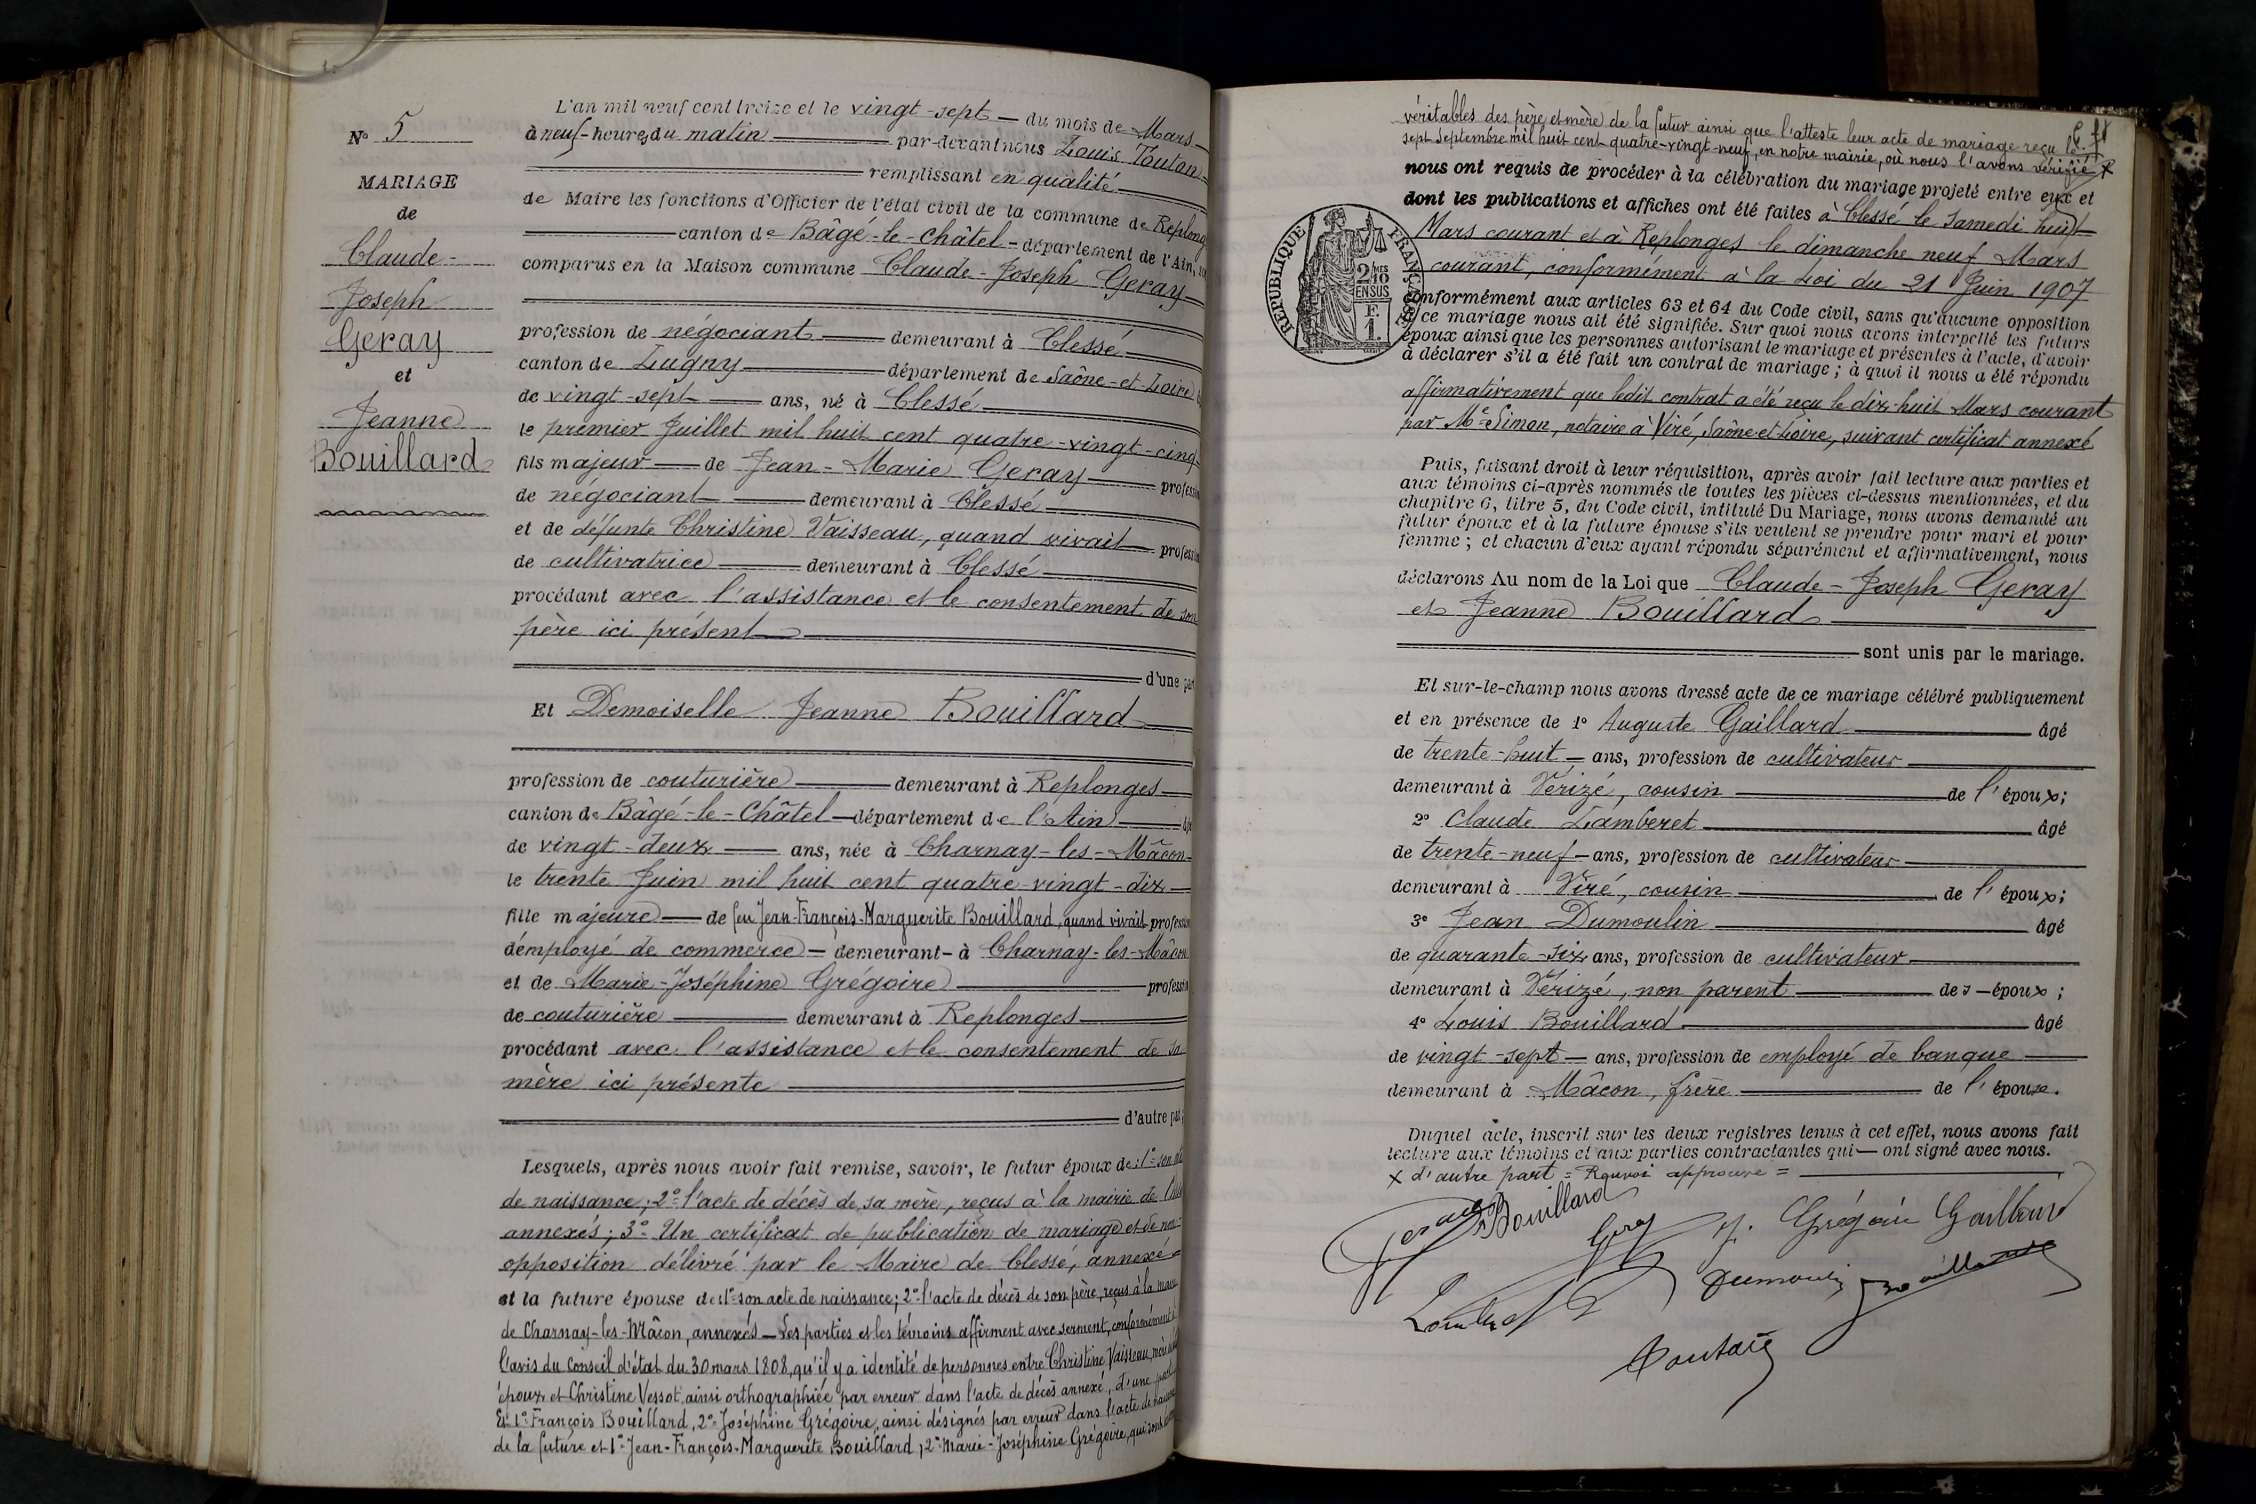 N° 5
MARIAGE
de
Claude-
Joseph
Geray
et
Jeanne
Bouillard
L'an mil neuf cent treize et le vingt-sept du mois de Mars
à neuf heures du matin par-devant nous Louis
remplissant en qualité
de Maire les fonctions d'Officier de l'état civil de la commune de Replong
canton de Bâgé-le-Châtel département de l'Ain,
comparus en la Maison commune Claude-Joseph Geray
profession de négociant demeurant à Clessé
canton de Lugny département de Saône-et-Loire
de vingt-sept ans, né à Clessé
le premier Juillet mil huit cent quatre-vingt-cinq
fils majeur de Jean-Marie Geray profession
de négociant demeurant à Clessé
et de défunte Christine Vaisseau, quand vivait profession
de cultivatrice demeurant à Clessé
procédant avec l'assistance et le consentement de son
père ici présent
d'une part
Et Demoiselle Jeanne Bouillard
profession de couturière demeurant à Replonges
canton de Bâgé-le-Châtel département de l'Ain
de vingt-deux ans, née à Charnay-les-Mâcon
le trente Juin mil huit cent quatre-vingt-dix
fille majeure de feu Jean-François-Marguerite Bouillard, quand vivait profession
d'employé de commerce demeurant à Charnay-les-Mâcon
et de Marie-Joséphine Grégoire profession
de couturière demeurant à Replonges
procédant avec l'assistance et le consentement de sa
mère ici présente
d'autre part
Lesquels, après nous avoir fait remise, savoir, le futur époux de: 1° son
de naissance; 2° l'acte de décès de sa mère, reçus à la mairie de
annexés; 3° Un certificat de publication de mariage et de non-
opposition délivré par le Maire de Clessé, annexé
et la future épouse de: 1° son acte de naissance; 2° l'acte de décès de son père, reçus à la mairie
de Charnay-les-Mâcon, annexés - Les parties et les témoins affirment avec serment, conformément à
l'avis du Conseil d'état du 30 mars 1808, qu'il y a identité de personnes entre Christine Vaisseau, mère
époux et Christine Vessot ainsi orthographiée par erreur dans l'acte de décès annexé, d'une part
Et 1° François Bouillard, 2° Joséphine Grégoire, ainsi désignés par erreur dans l'acte de naissance
de la future et 1° Jean-François-Marguerite Bouillard, 2° Marie-Joséphine Grégoire, qui sont
véritables des père et mère de la futur ainsi que l'atteste leur acte de mariage reçu le
sept Septembre mil huit cent quatre-vingt-neuf, en notre mairie, où nous l'avons vérifié
nous ont requis de procéder à la célébration du mariage projeté entre eux et
dont les publications et affiches ont été faites à Clessé le samedi huit
Mars courant et à Replonges le dimanche neuf Mars
courant, conformément à la Loi du 21 Juin 1907
RÉPUBLIQUE FRANÇAISE
2/10
EN SUS
F.
1.
conformément aux articles 63 et 64 du Code civil, sans qu'aucune opposition
à ce mariage nous ait été signifiée. Sur quoi nous avons interpellé les futurs
époux ainsi que les personnes autorisant le mariage et présentes à l'acte, d'avoir
à déclarer s'il a été fait un contrat de mariage; à quoi il nous a été répondu
affirmativement que ledit contrat a été reçu le dix-huit Mars courant
par Me Simon, notaire à Viré, Saône-et-Loire, suivant certificat annexé
Puis, faisant droit à leur réquisition, après avoir fait lecture aux parties et
aux témoins ci-après nommés de toutes les pièces ci-dessus mentionnées, et du
chapitre 6, titre 5, du Code civil, intitulé Du Mariage, nous avons demandé au
futur époux et à la future épouse s'ils veulent se prendre pour mari et pour
femme; et chacun d'eux ayant répondu séparément et affirmativement, nous
déclarons Au nom de la Loi que Claude-Joseph Geray
et Jeanne Bouillard
sont unis par le mariage.
Et sur-le-champ nous avons dressé acte de ce mariage célébré publiquement
et en présence de 1° Auguste Gaillard âgé
de trente-huit ans, profession de cultivateur
demeurant à Vérizé, cousin de l'époux;
2° Claude Lamberet âgé
de trente-neuf ans, profession de cultivateur
demeurant à Viré, cousin de l'époux;
3° Jean Dumoulin âgé
de quarante-six ans, profession de cultivateur
demeurant à Vérizé, non parent des époux;
4° Louis Bouillard âgé
de vingt-sept ans, profession de employé de banque
demeurant à Mâcon, frère de l'épouse.
Duquel acte, inscrit sur les deux registres tenus à cet effet, nous avons fait
lecture aux témoins et aux parties contractantes qui ont signé avec nous.
x d'autre part = Renvoi approuvé =
Geray J Bouillard Geray J. Grégoire Gaillard
Lamberet Dumoulin Bouillard